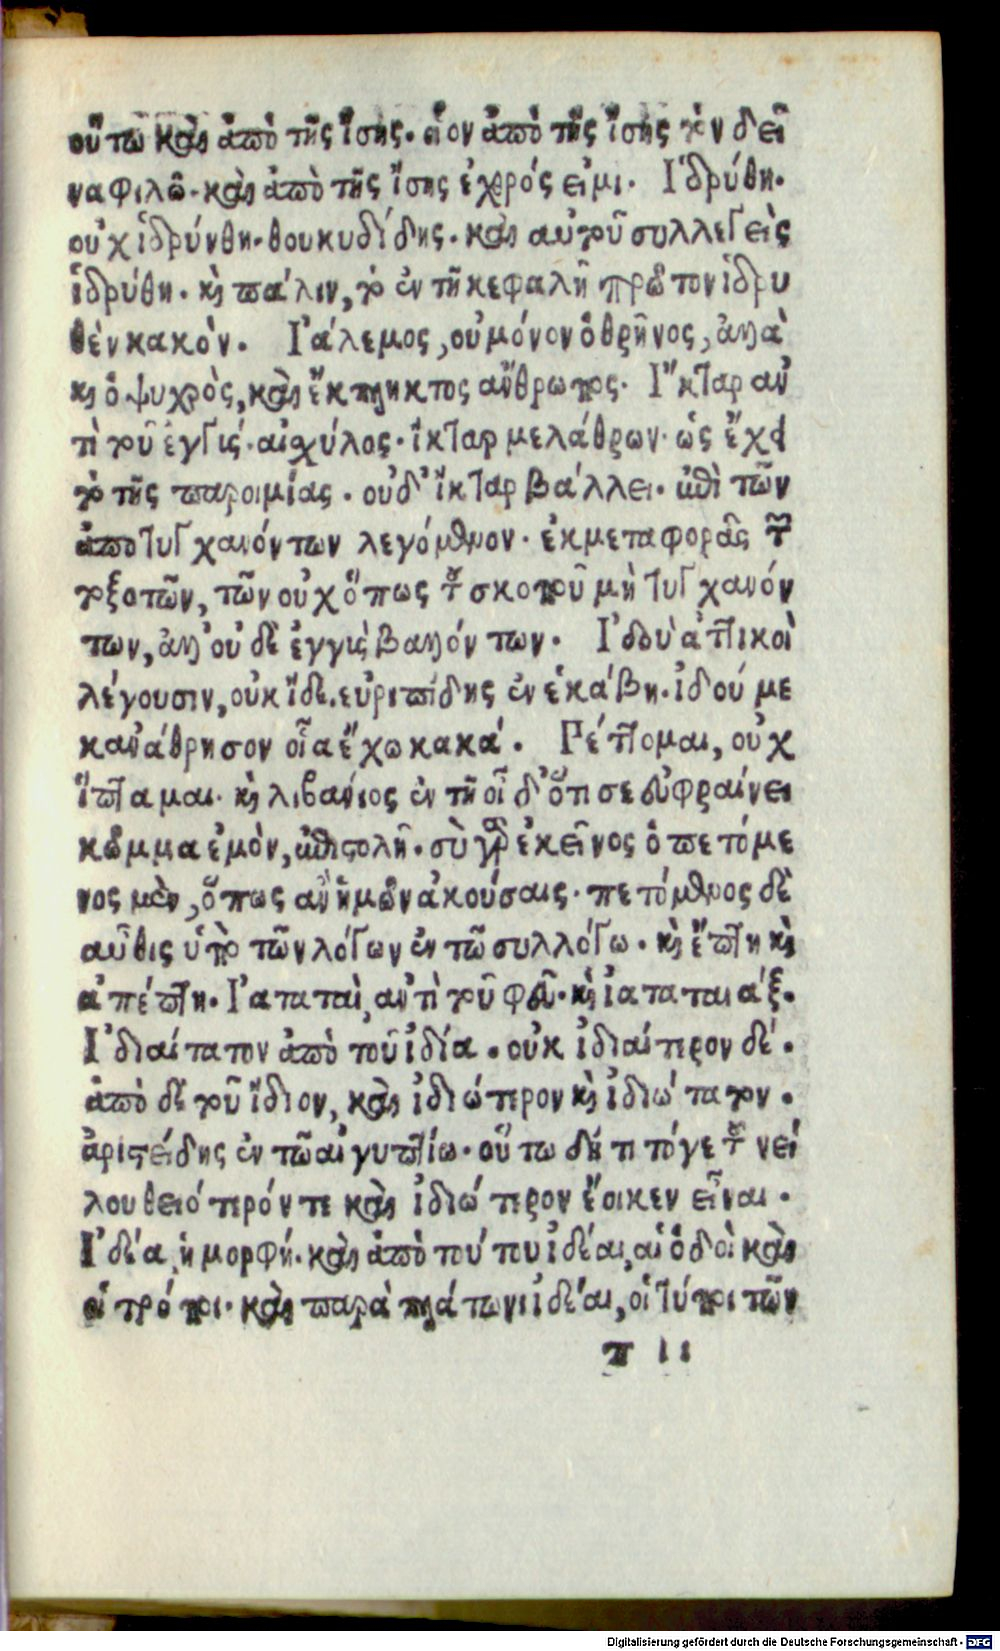 οὕτω καὶ ἀπὸ τῆς ἴσης. οἷον ἀπὸ τῆς ἴσης τὸν δεῖ
να φιλῶ. καὶ ἀπὸ τῆς ἴσης ἐχθρός εἰμι. Ἱδρύθη.
οὐχ ἱδρύνθη. θουκυδίδης. καὶ αὐτοῦ συλλεγεὶς
ἱδρύθη. καὶ πάλιν, τὸ ἐν τῆ κεφαλῆ πρῶτον ἱδρυ
θὲν κακὸν. Ἰάλεμος, οὐ μόνον ὁ θρῆνος, ἀλλὰ
καὶ ὁ ψυχρὸς, καὶ ἔκπληκτος ἄνθρωπος. Ἴκταρ ἀν
τὶ τοῦ ἐγγίς. αἰσχύλος. ἴκταρ μελάθρων. ὡς ἔχει
τὸ τῆς παροιμίας. οὐδ' ἴκταρ βάλλει. ἐπὶ τῶν
ἀποτυγχανόντων λεγόμενον. ἐκ μεταφορᾶς τῶν
τοξοτῶν, τῶν οὐχ ὅπως τοῦ σκοποῦ μὴ τυγχανόν
των, ἀλλ' οὐδὲ ἐγγὶς βαλλόντων. Ἰδοὺ ἀττικοὶ
λέγουσιν, οὐκ ἴδε. εὐριπίδης ἐν ἑκάβη. ἰδού με
κανάθρησον οἷα ἔχω κακά. Πέτομαι, οὐχ
ἵπταμαι. καὶ λιβανίος ἐν τῆ οἶδ' ὅτι σε εὐφραίνει
κῶμμα ἐμὸν, ἐπιστολῆ. σὺ γὰρ ἐκεῖνος ὁ πετόμε
νος μὲν, ὅπως ἂν ἡμῶν ἀκούσαις. πετόμενος δὲ
αὖθις ὑπὸ τῶν λόγων ἐν τῶ συλλόγω. καὶ ἔπτη καὶ
ἀπέπτη. Ἰαταταὶ, ἀντὶ τοῦ φεῦ. καὶ ἰαταταιάξ.
Ἰδιαίτατον ἀπὸ τοῦ ἰδία. οὐκ ἰδιαίτερον δέ.
ἀπὸ δὲ τοῦ ἴδιον, καὶ ἰδιώτερον καὶ ἰδιώτατον.
ἀριστείδης ἐν τῶ αἰγυπτίω. οὕτω δή τι τόγε τοῦ νεί
λου θειότερόν τε καὶ ἰδιώτερον ἔοικεν εἶναι.
Ἰδέα, ἡ μορφή. καὶ ἀπὸ τούτου ἰδέαι, αἱ ὁδοὶ καὶ
οἱ τρόποι. καὶ παρὰ πλάτωνι ἰδέαι, οἱ τύποι τῶν
π ιι
Digitalisierung gefördert durch die Deutsche Forschungsgemeinschaft - DFG